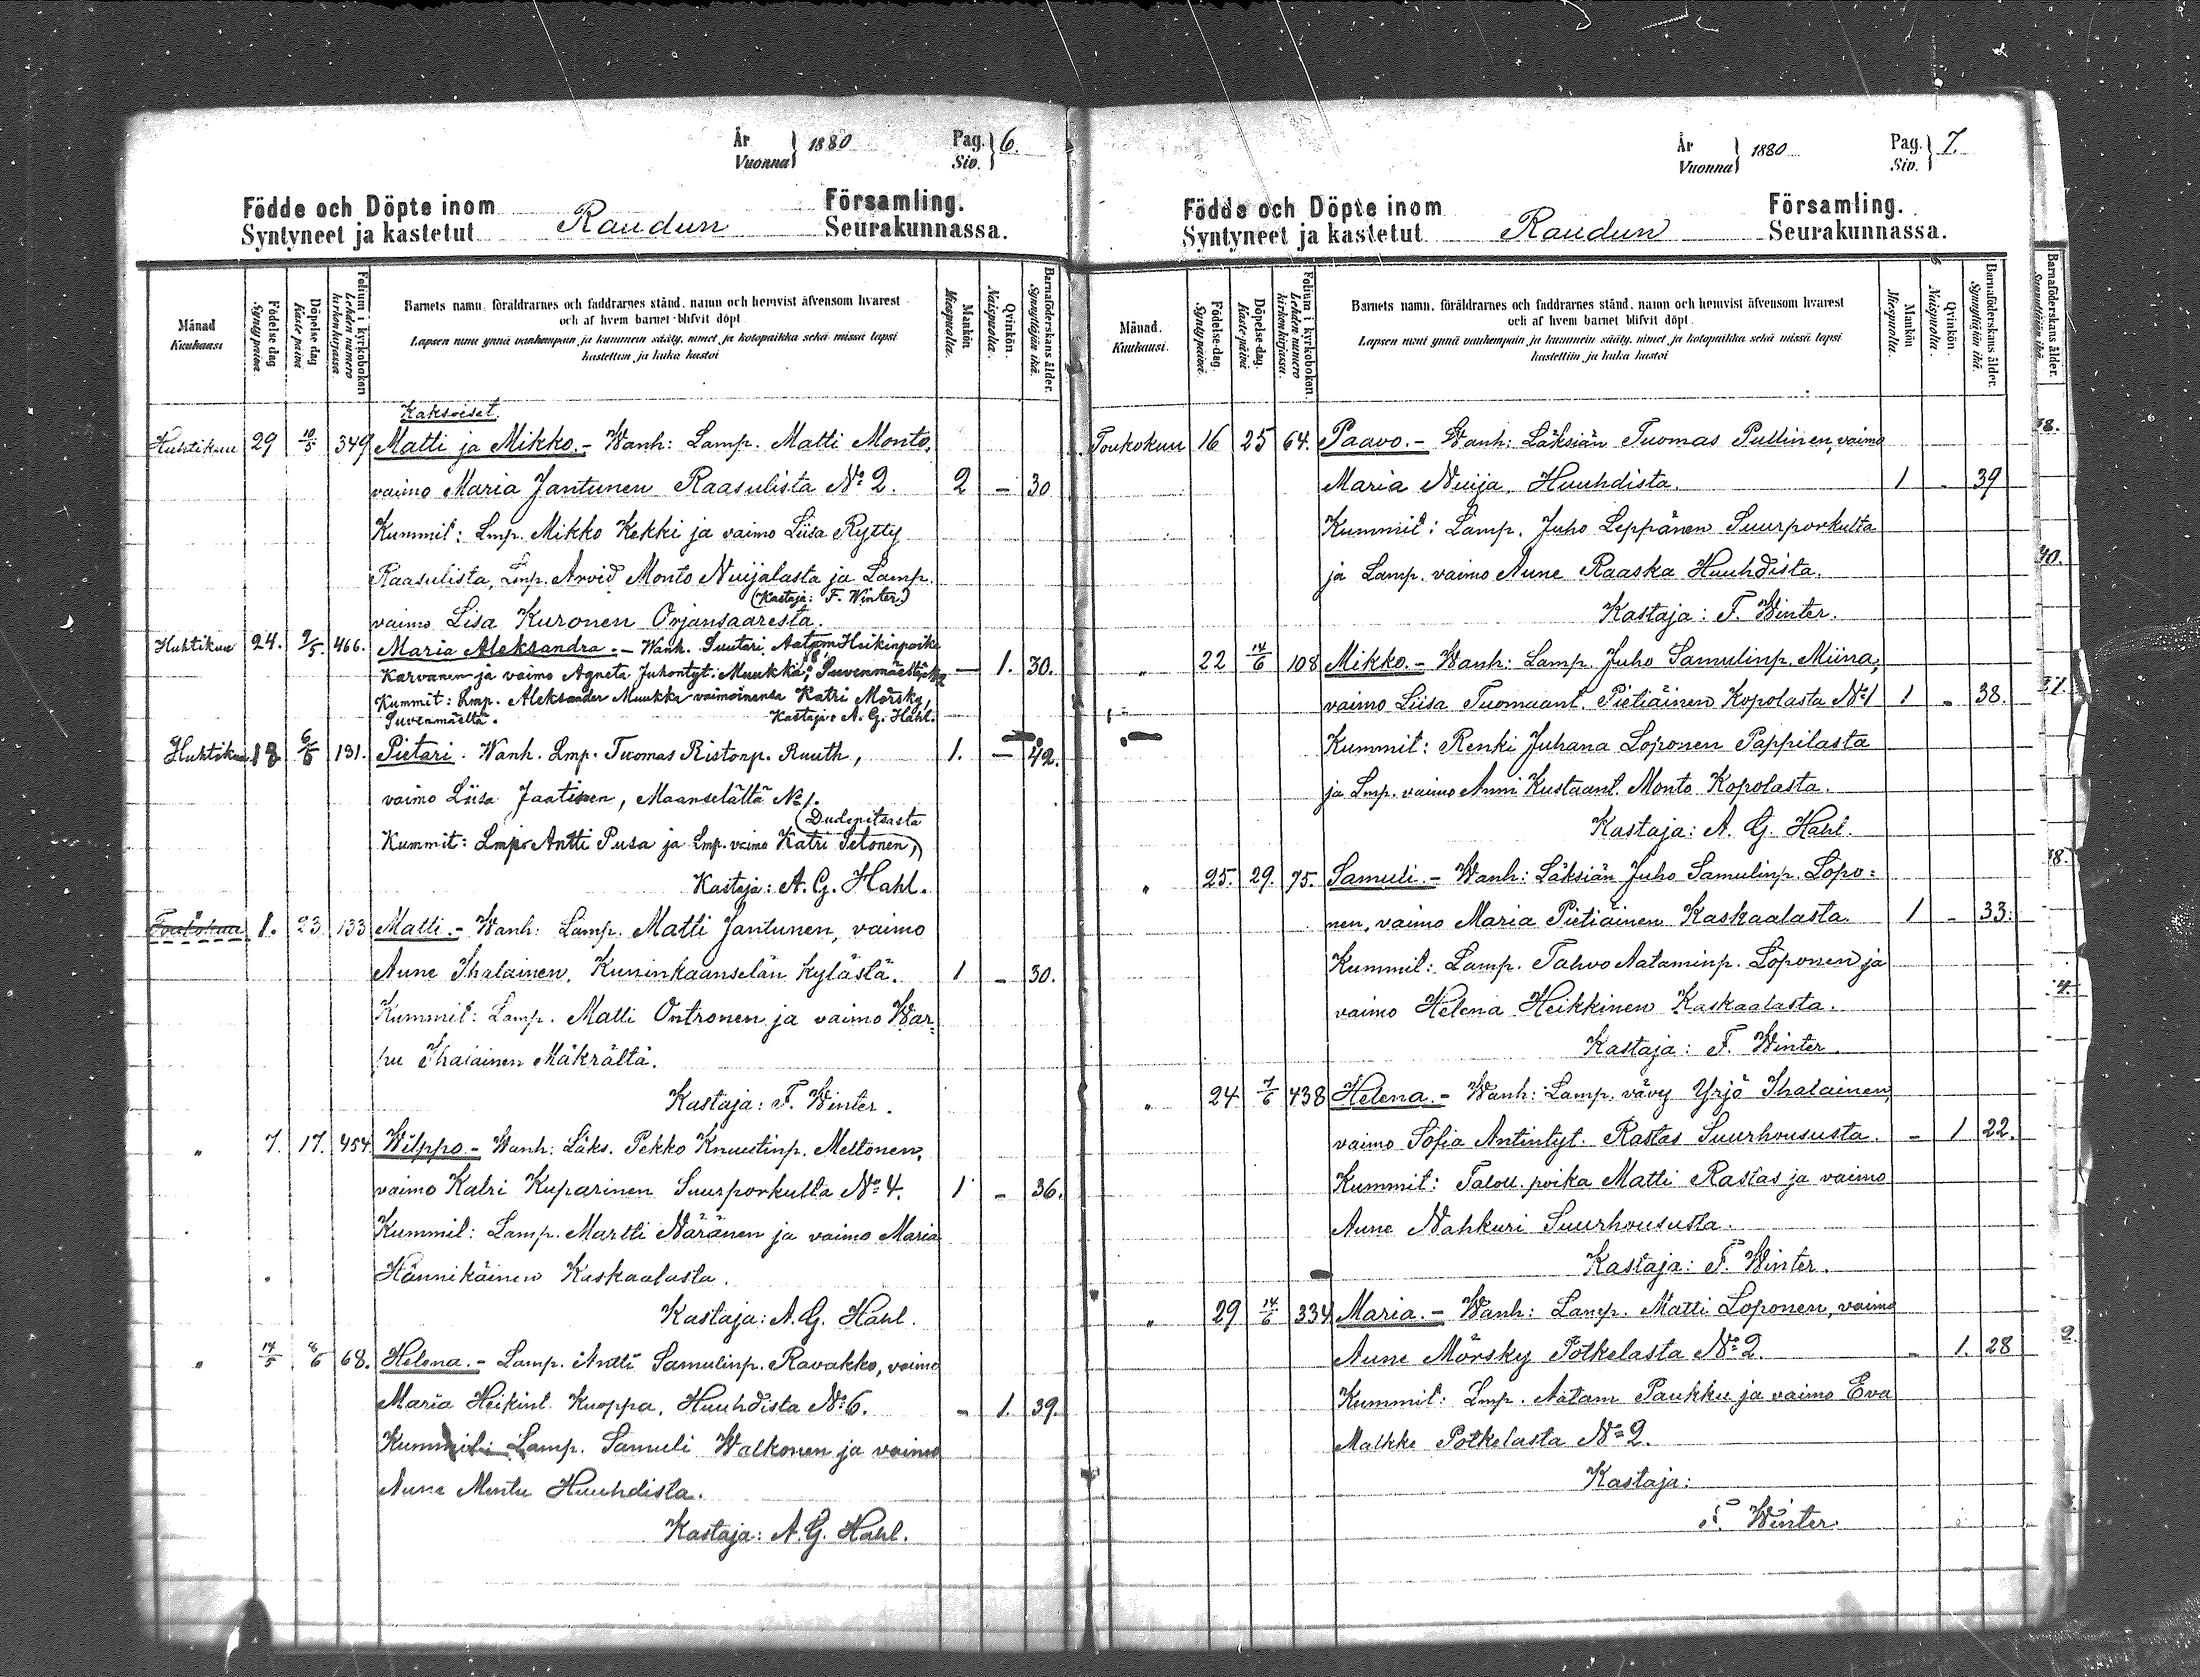 År
Vuonna } 1880
Pag.
Siv. } 6.
Födde och Döpte inom
Syntyneet ja kastetut Raudun Församling.
Seurakunnassa.
Månad
Kuukausi
Födelse dag
Syntypäivä.
Döpelse dag
Kaste päivä
Folium i kyrkoboken
Lehden numero
kirkonkirjassa
Barnets namn, föräldrarnes och faddrarnes stånd, namn och hemvist äfvensom hvarest
och af hvem barnet blifvit döpt
Lapsen nimi ynnä vanhempain ja kummein sääty, nimet ja kotopaikka sekä missä lapsi
kastettiin ja kuka kastoi
Mankön
Miespuolta.
Qvinkön.
Naispuolta.
Barnaföderskans ålder.
Synnyttäjän ikä.
Kaksoiset.
Huhtikuu 29 10/5 349 Matti ja Mikko. - Wanh: Lamp. Matti Monto,
vaimo Maria Jantunen Raasulista No 2. 2 - 30
Kummit: Lmp. Mikko Kekki ja vaimo Liisa Rytty
Raasulista, Lmp. Arvid Monto Nuijalasta ja Lamp.
(Kastaja: F. Winter.)
vaimo Lisa Kuronen Orjansaaresta.
Huhtikuu 24. 9/5. 466. Maria Aleksandra. - Wanh. Suutari, Aatam Heikinpoika
Karvanen ja vaimo Agneta Juhontyt. Muukka, Suvenmäeltä - 1. 30.
Kummit: Lmp. Aleksander Muukka vaimoinensa Katri Mörsky,
Suvenmäeltä. Kastaja: A. G. Hahl.
Huhtikuu 6/5 131. Pietari. Wanh. Lmp. Tuomas Ristonp. Ruuth, 1. - 42.
vaimo Liisa Jaatinen, Maanselältä No 1.
(Dudenitsasta
Kummit: Lmp. Antti Pusa ja Lmp. vaimo Katri Petonen,)
Kastaja: A. G. Hahl.
Toukokuu 1. 23. 133 Matti. - Wanh: Lamp. Matti Jantunen, vaimo
Aune Ihalainen, Kuninkaanselän kylästä. 1 - 30.
Kummit: Lamp. Matti Ontronen ja vaimo War-
pu Ihalainen Mäkrältä.
Kastaja: F. Winter.
" 7. 17. 454. Wilppo. - Wanh: Läks. Pekko Knuutinp. Mettonen,
vaimo Katri Kuparinen Suurporkulta No 4. 1 - 36.
Kummit: Lamp. Martti Näränen ja vaimo Maria
Hännikäinen Kaskaalasta.
Kastaja: A. G. Hahl.
" 14/5 8/6 68. Helena. - Lamp. Antti Samulinp. Ravakko, vaimo
Maria Heikint. Kuoppa, Huuhdista No 6. - 1. 39.
Kummit: Lamp. Samuli Walkonen ja vaimo
Aune Montu Huuhdista.
Kastaja: A. G. Hahl.
År
Vuonna } 1880
Pag.
Siv. } 7.
Födde och Döpte inom
Syntyneet ja kastetut Raudun Församling.
Seurakunnassa.
Månad.
Kuukausi.
Födelse-dag.
Syntypäivä.
Döpelse-dag.
Kastepäivä
Folium i kyrkoboken
Lehden numero
kirkonkirjassa.
Barnets namn, föräldrarnes och faddrarnes stånd, namn och hemvist äfvensom hvarest
och af hvem barnet blifvit döpt.
Lapsen nimi ynnä vanhempain ja kummein sääty, nimet ja kotopaikka sekä missä lapsi
kastettiin ja kuka kastoi
Mankön
Miespuolta.
Qvinkön.
Naispuolta.
Barnaföderskans ålder.
Synnyttäjän ikä.
Toukokuu 16 25 64. Paavo. - Wanh: Läksiän Tuomas Pullinen, vaimo
Maria Nuija, Huuhdista. 1 - 39
Kummit: Lamp. Juho Leppänen Suurporkulta
ja Lamp. vaimo Aune Raaska Huuhdista.
Kastaja: F. Winter.
" 22 14/6 108 Mikko. - Wanh: Lamp. Juho Samulinp. Miina,
vaimo Liisa Tuomaant. Pietiäinen Kopolasta No 1 1 - 38.
Kummit: Renki Juhana Loponen Pappilasta
ja Lmp. vaimo Anni Kustaant. Monto Kopolasta.
Kastaja: A. G. Hahl.
" 25. 29. 75. Samuli. - Wanh: Läksiän Juho Samulinp. Lopo=
nen, vaimo Maria Pietiäinen Kaskaalasta. 1 - 33.
Kummit: Lamp. Tahvo Aataminp. Loponen ja
vaimo Helena Heikkinen Kaskaalasta.
Kastaja: F. Winter.
" 24 7/6 438 Helena. - Wanh: Lamp. vävy Yrjö Ihalainen,
vaimo Sofia Antintyt. Rastas Suurhousu­sta. - 1 22.
Kummit: Taloll. poika Matti Rastas ja vaimo
Aune Nahkuri Suurhousu­sta.
Kastaja: F. Winter.
" 29 14/6 334 Maria. - Wanh: Lamp. Matti Loponen, vaimo
Aune Mörsky Potkelasta No 2. - 1. 28
Kummit: Lmp. Aatam Paukku ja vaimo Eva
Malkke Potkelasta No 2.
Kastaja:
F. Winter.
Barnaföderskans ålder.
Synnyttäjän ikä.